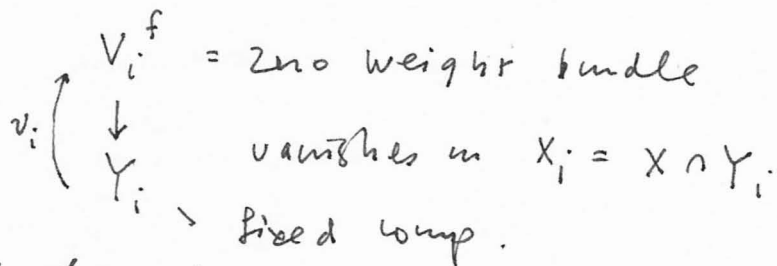 V_i^f = zero weight bundle
v_i ↓ vanishes on X_i = X ∩ Y_i
Y_i fixed comp.